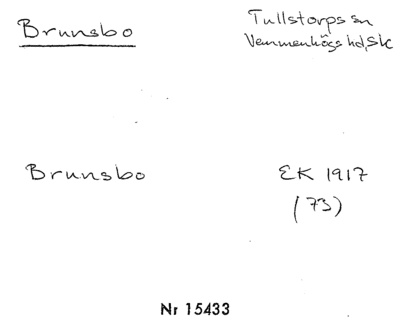 Brunsbo
Tullstorps sn
Vemmenhögs hd, Sk
Brunsbo
EK 1917
(73)
Nr 15433